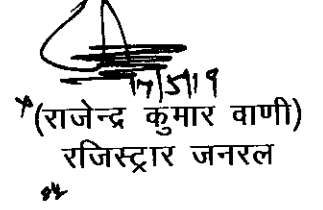 17/5/19
(राजेन्द्र कुमार वाणी)
रजिस्ट्रार जनरल